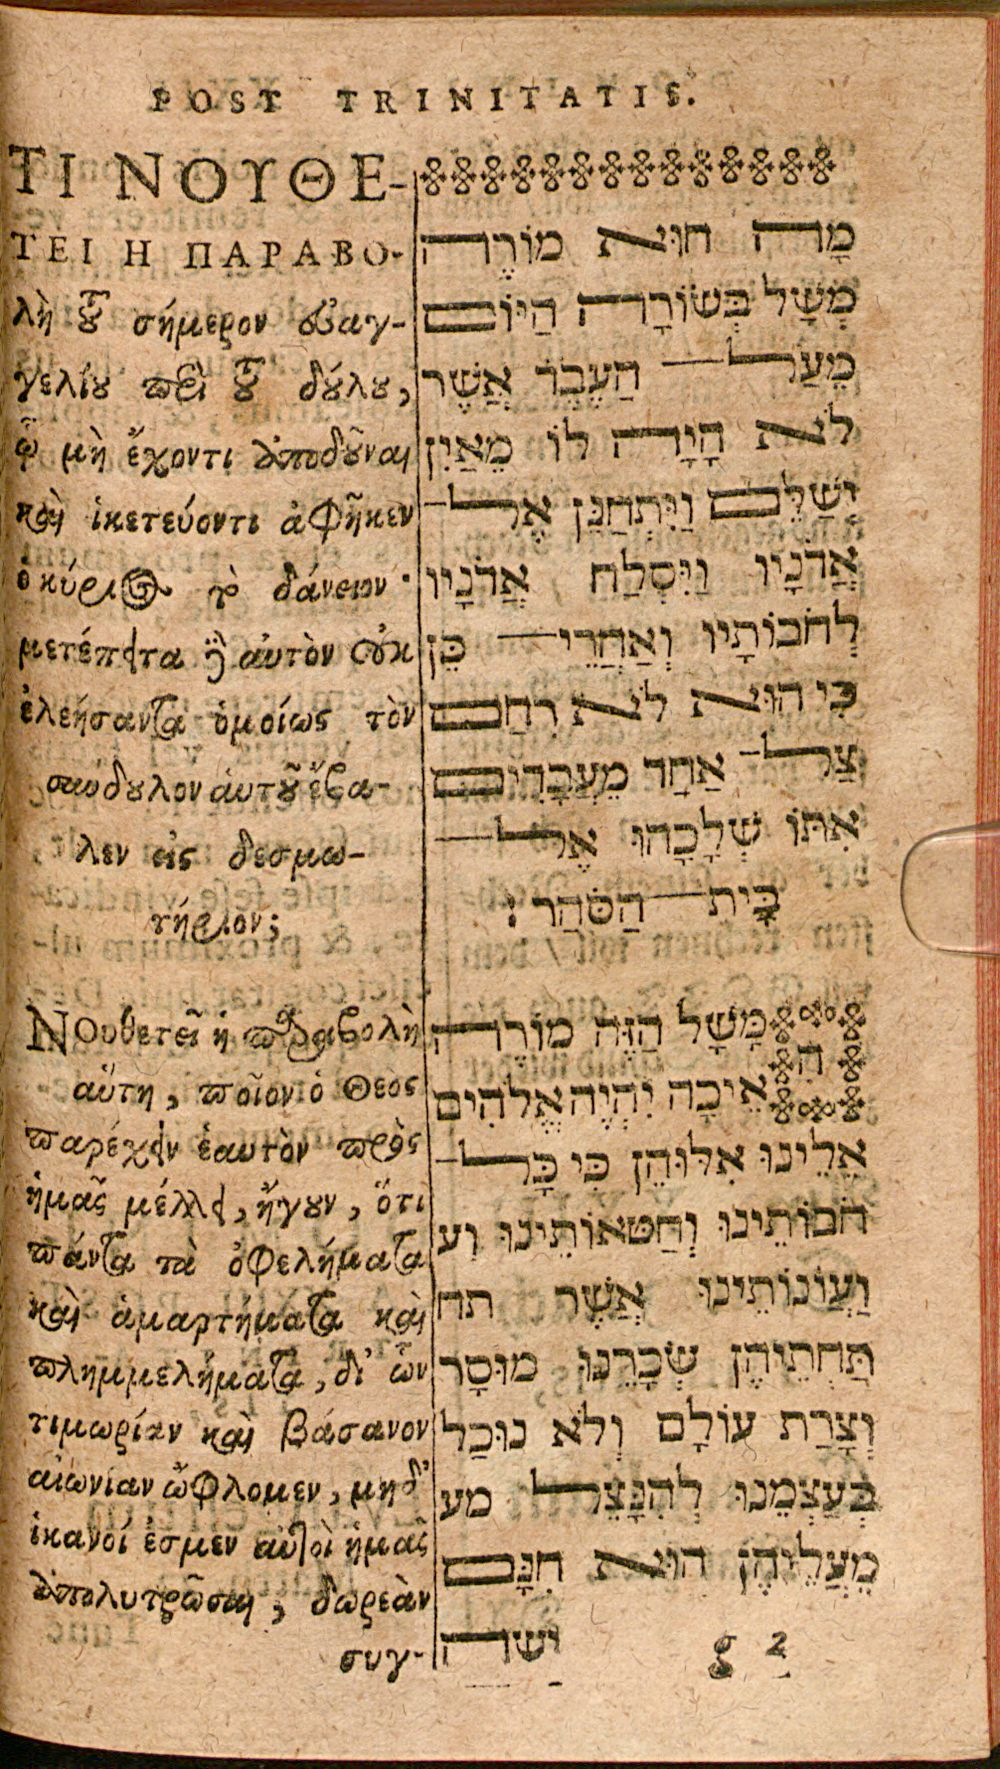 POST TRINITATIS.
ΤΙ ΝΟΥΘΕ-
ΤΕΙ Η ΠΑΡΑΒΟ-
λὴ τοῦ σήμερον εὐαγ-
γελίου περὶ τοῦ δούλου,
ᾧ μὴ ἔχοντι ἀποδοῦναι
καὶ ἱκετεύοντι ἀφῆκεν
ὁ κύριος τὸ δάνειον·
μετέπειτα δὲ αὐτὸν οὐκ
ἐλεήσαντα ὁμοίως τὸν
σύνδουλον αὐτοῦ ἔβα-
λεν εἰς δεσμω-
τήριον;
Νουθετεῖ ἡ παραβολὴ
αὕτη, ποῖον ὁ Θεος
παρέχειν ἑαυτὸν πρὸς
ἡμᾶς μέλλει, ἤγουν, ὅτι
πάντα τὰ ὀφελήματα
καὶ ἁμαρτήματα καὶ
πλημμελήματα, δι' ὧν
τιμωρίαν καὶ βάσανον
αἰώνιαν ὤφλομεν, μηδ'
ἱκανοί ἐσμεν αὐτοὶ ἡμᾶς
ἀπολυτρῶσαι, δωρεὰν
συγ-
מָה הוּא מוֹרֶה
מְשָׁל בְּשׂוֹרָה הַיּוֹם
מֵעַל הַעֶבֶר אֲשֶׁר
לֹא הָיָה לוֹ מֵאַיִן
יְשַׁלֵּם וַיִּתְחַנֵּן אֶל
אֲדֹנָיו וַיִּסְלַח אֲדֹנָיו
לְחֹבוֹתָיו וְאַחֲרֵי כֵן
כִּי הוּא לֹא רִחַם
עַל אַחָד מֵעֲבָדִים
אִתּוֹ שְׁלָכָהוּ אֶל
בֵּית הַסֹּהַר׃
הַמָּשָׁל הַזֶּה מוֹרֶה
אֵיכָה יִהְיֶה אֱלֹהִים
אֵלֵינוּ אִלּוּהֵן כִּי כָּל
חֹבוֹתֵינוּ וְחַטּאוֹתֵינוּ וע
וַעֲוֹנוֹתֵינוּ אֲשֶׁר תח
תַּחְתֵּיהֶן שְׂכָרֵנוּ מוּסָר
וְצָרַת עוֹלָם וְלֹא נוּכַל
בְּעַצְמֵנוּ לְהִנָּצֵל מע
מֵעֲלֵיהֶן הוּא חִנָּם
ישה
g 2